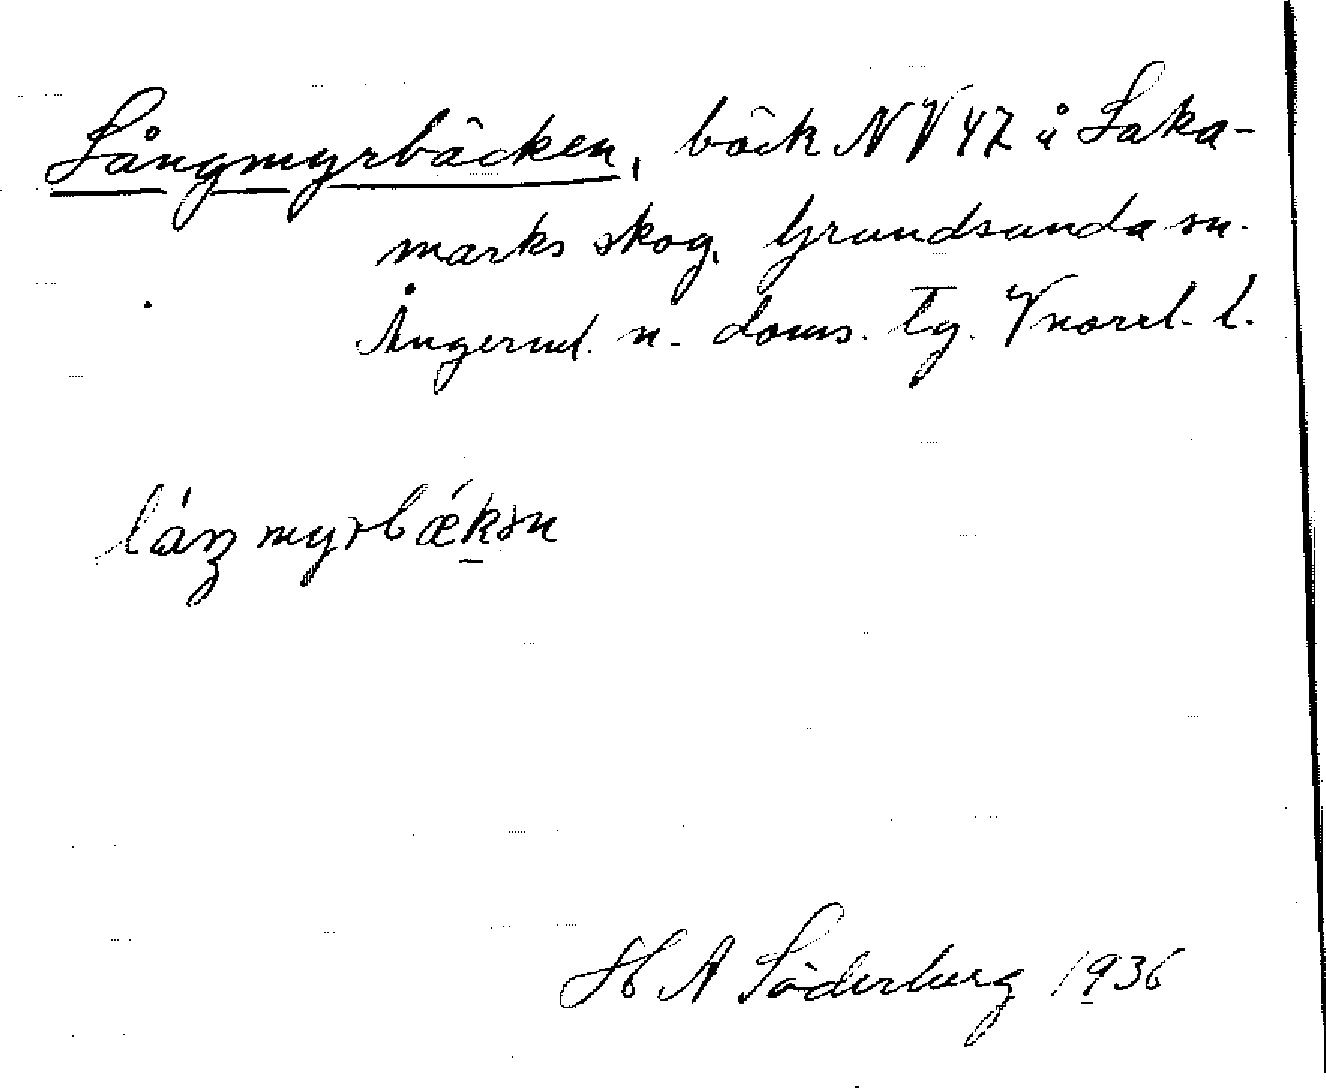 Långmyrbäcken, bäck NV 47 å Laka-
marks skog, Grundsunda sn.
Ångerml. n. doms. tg. Vnorrl. l.
láŋmyrbǽkən
H A Söderberg 1936